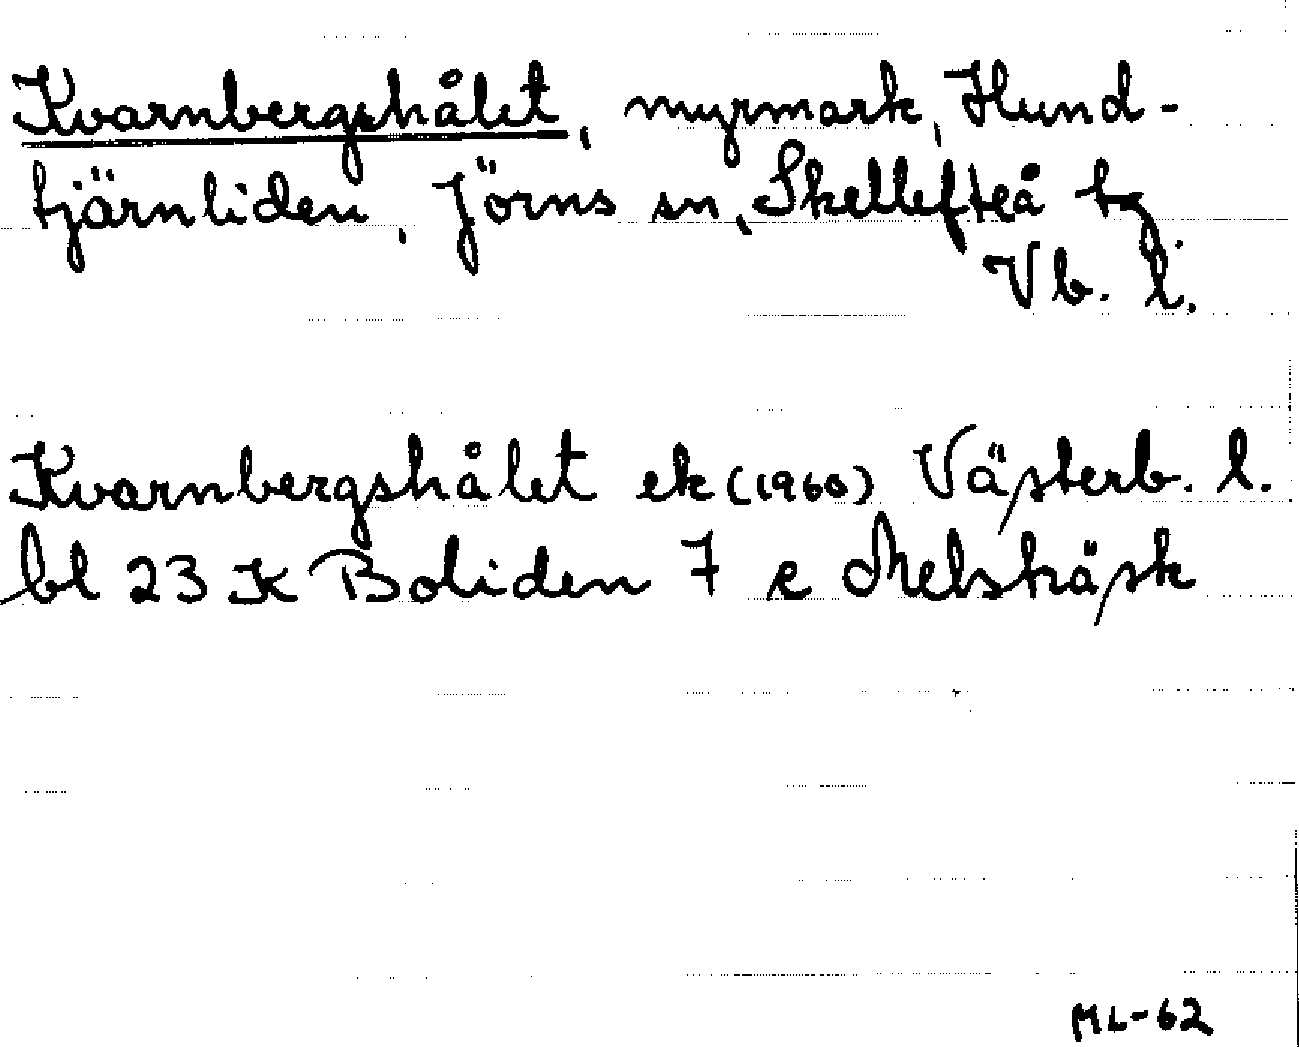 Kvarnbergshålet, myrmark, Hund-
tjärnliden, Jörns sn, Skellefteå tg
Vb. l.
Kvarnbergshålet ek (1960) Västerb. l.
bl 23 K Boliden 7 e Melsträsk
ML-62